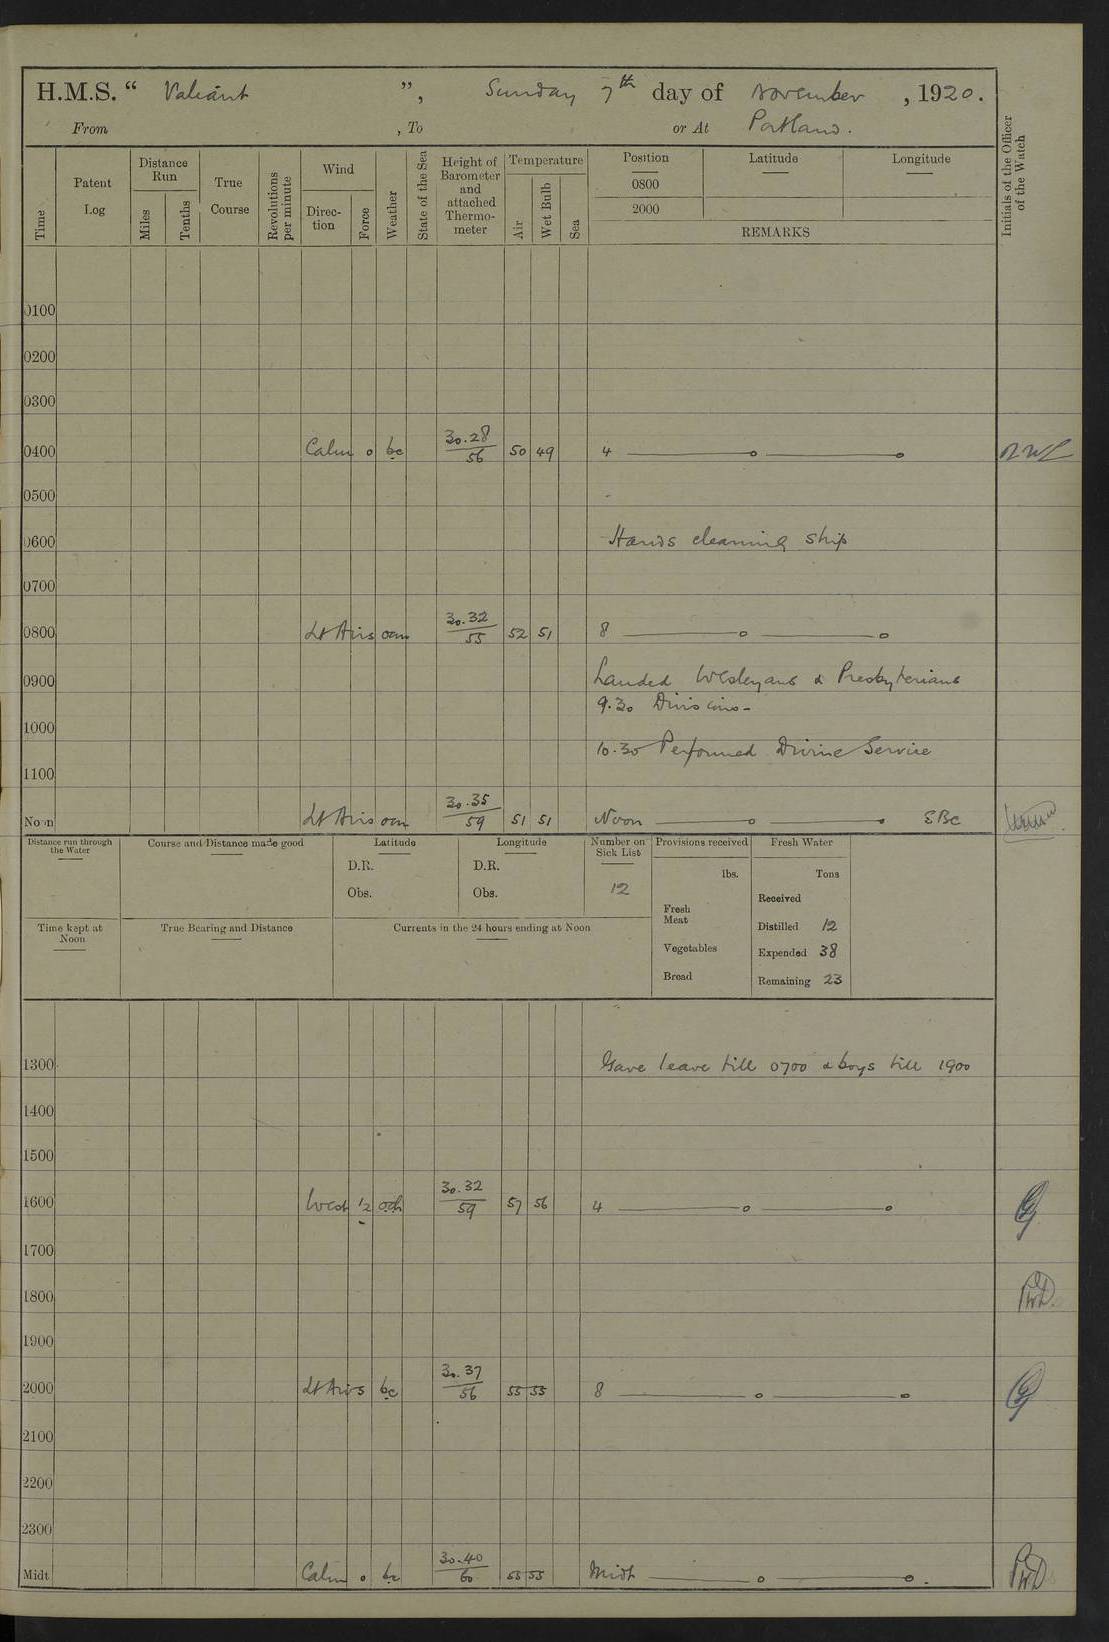 H.M.S. “ Valiant ”, Sunday 7th day of November, 1920.
From , To or At Portland.
Time
Patent Log
Distance Run
Miles
Tenths
True Course
Revolutions per minute
Wind
Direction
Force
Weather
State of the Sea
Height of Barometer and attached Thermometer
Temperature
Air
Wet Bulb
Sea
Position Latitude Longitude
0800
2000
REMARKS
Initials of the Officer of the Watch
0100
0200
0300
0400 Calm 0 bc 30.28/56 50 49 4
0500
0600 Hands cleaning ship
0700
0800 Lt Airs om 30.32/55 52 51 8
0900 Landed Wesleyans & Presbyterians
9.30 Divisions-
1000
10.30 Performed Divine Service
1100
Noon Lt Airs om 30.35/59 51 51 Noon EBC
Distance run through the Water
Course and Distance made good
Latitude
D.R.
Obs.
Longitude
D.R.
Obs.
Number on Sick List
12
Provisions received
lbs.
Fresh Meat
Vegetables
Bread
Fresh Water
Tons
Received
Distilled 12
Expended 38
Remaining 23
Time kept at Noon
True Bearing and Distance
Currents in the 24 hours ending at Noon
1300 Gave leave till 0700 & boys till 1900
1400
1500
1600 West 1/2 30.32/59 57 56 4
1700
1800
1900
2000 Lt Airs bc 30.37/56 55 55 8
2100
2200
2300
Midt Calm 0 bc 30.40/60 55 55 Midt